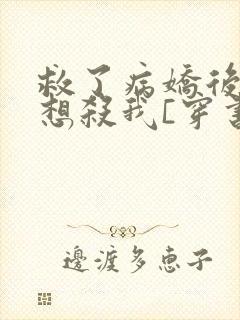 救了病嬌後
想殺我[穿書
邊渡多惠子